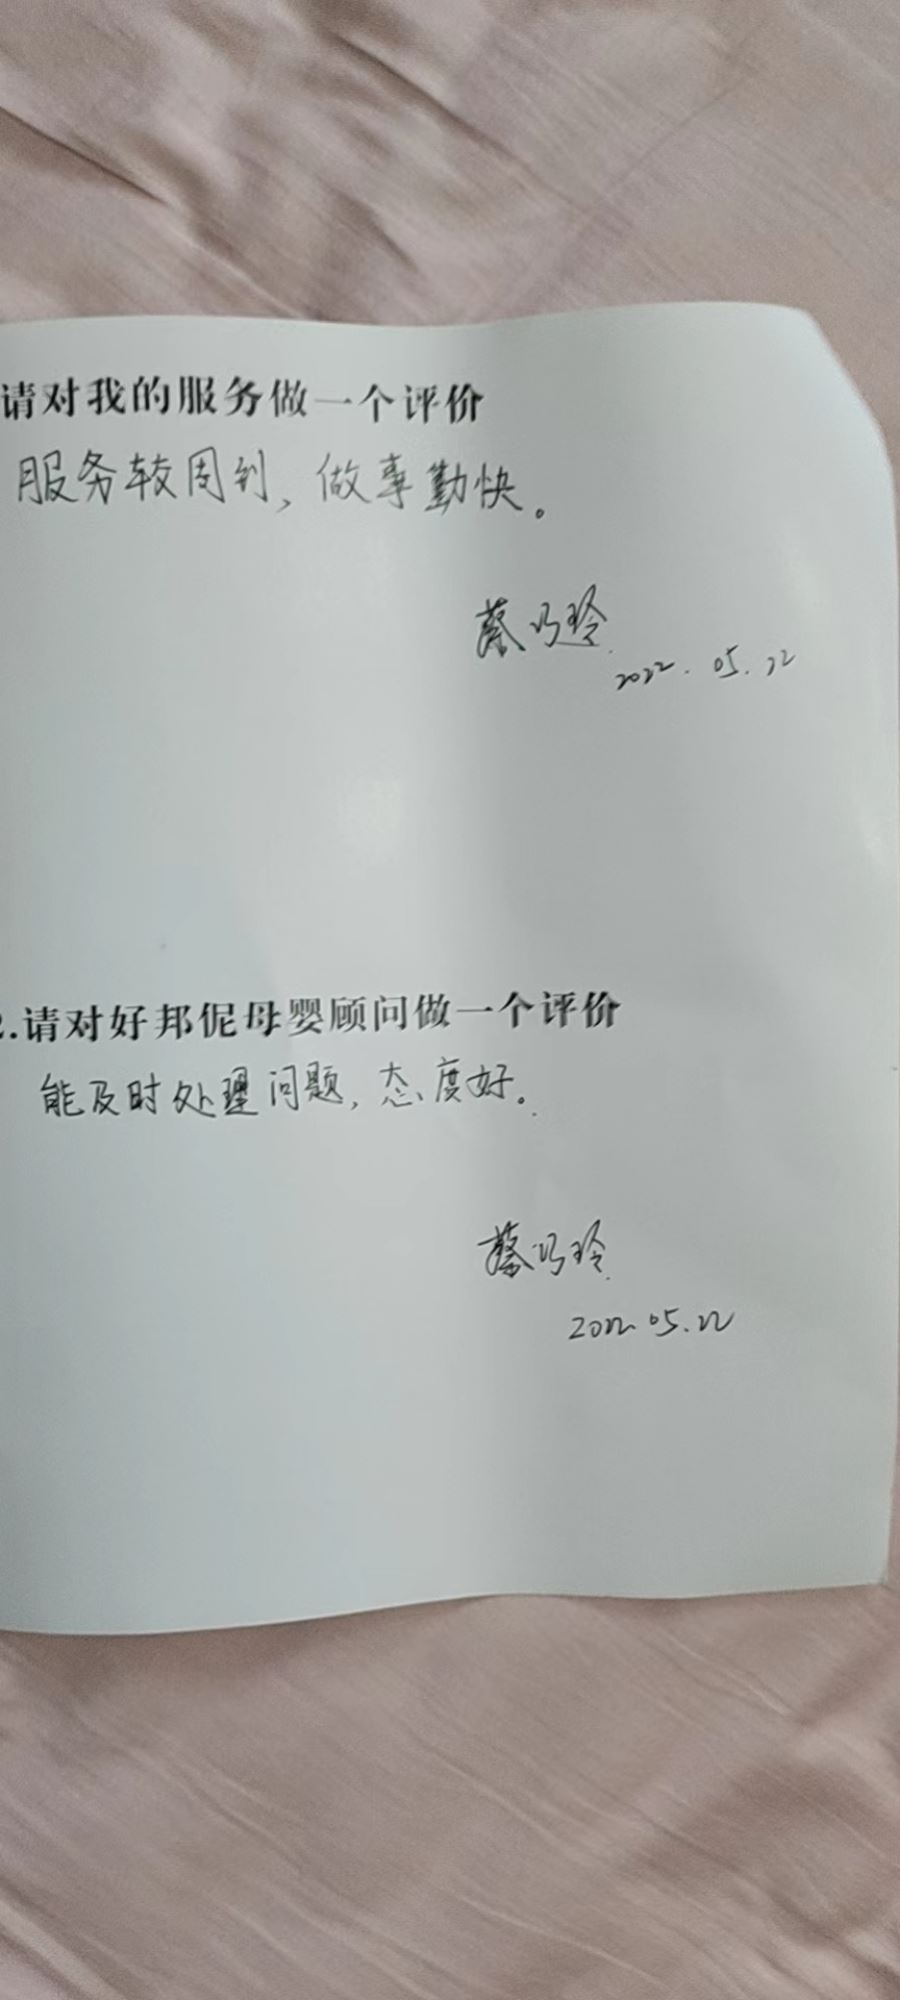 请对我的服务做一个评价
服务较周到，做事勤快。
蔡巧玲
2022.05.22
2.请对好邦伲母婴顾问做一个评价
能及时处理问题，态度好。
蔡巧玲
2022.05.22